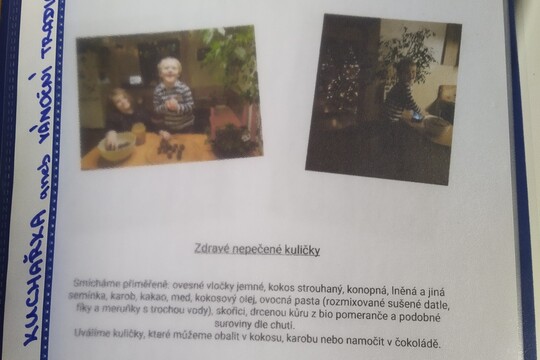 KUCHAŘKA aneb VÁNOČNÍ
Zdravé nepečené kuličky
Smícháme přiměřeně: ovesné vločky jemné, kokos strouhaný, konopná, lněná a jiná
semínka, karob, kakao, med, kokosový olej, ovocná pasta (rozmixované sušené datle,
fíky a meruňky s trochou vody), skořici, drcenou kůru z bio pomeranče a podobné
suroviny dle chuti.
Uválíme kuličky, které můžeme obalit v kokosu, karobu nebo namočit v čokoládě.